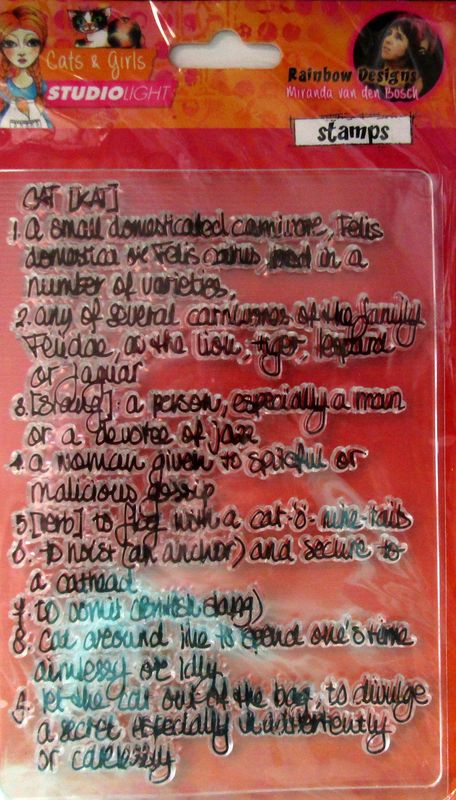 Cats & Girls
STUDIOLIGHT
Rainbow Designs
Miranda van den Bosch
stamps
CAT [KAT]
1. a small domesticated carnivore, Felis
domestica or Felis catus, bred in a
number of varieties.
2. any of several carnivores of the family
Felidae, as the lion, tiger, leopard
or jaguar
3. [slang]: a person, especially a man
or a devotee of jazz
4. a woman given to spiteful or
malicious gossip
5 [verb] to flog with a cat-o'-nine-tails
6. to hoist (an anchor) and secure to
a cathead
7. to vomit (British slang)
8. cat around live to spend one's time
aimlessy or idly
9. let the cat out of the bag, to divulge
a secret especially inadvertently
or carelessly